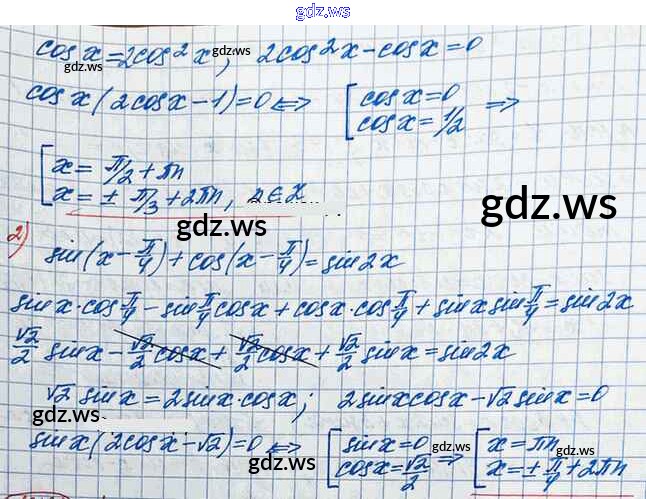 gdz.ws
cos x = 2cos² x gdz.ws ; 2cos² x - cos x = 0
gdz.ws
cos x (2cos x - 1) = 0 ⇔ [ cos x = 0 ⇒
cos x = 1/2
[ x = π/2 + πn
x = ± π/3 + 2πn, n ∈ Z
gdz.ws
gdz.ws
2)
sin(x - π/4) + cos(x - π/4) = sin 2x
sin x · cos π/4 - sin π/4 cos x + cos x · cos π/4 + sin x sin π/4 = sin 2x
√2/2 sin x - √2/2 cos x + √2/2 cos x + √2/2 sin x = sin 2x
√2 sin x = 2 sin x · cos x ; 2 sin x cos x - √2 sin x = 0
gdz.ws
sin x (2cos x - √2) = 0 ⇔ [ sin x = 0 ⇒ [ x = πn
cos x = √2/2 x = ± π/4 + 2πn
gdz.ws
gdz.ws
gdz.ws